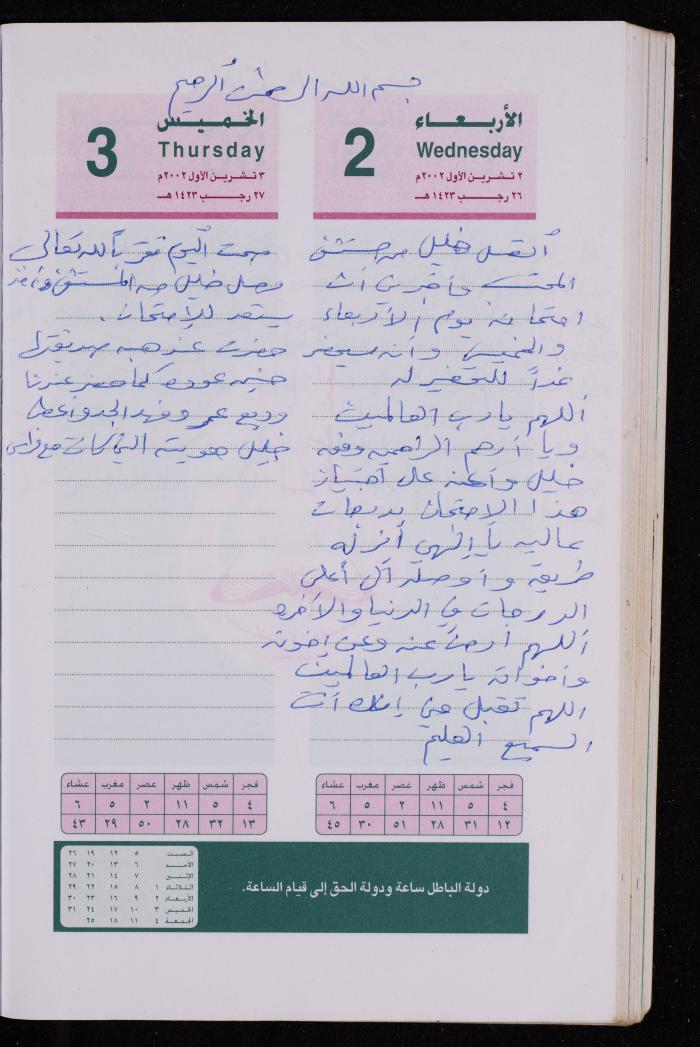 بسم الله الرحمن الرحيم
الأربعاء
Wednesday
2
٢ تشرين الأول ٢٠٠٢م
٢٦ رجب ١٤٢٣ هـ
اتصل خليل من
وأخبرني أن
امتحانه يوم الأربعاء
والخميس وأنه سيحضر
غداً للتحضير له
اللهم يا رب العالمين
ويا أرحم الراحمين وفق
خليل وأعنه على اجتياز
هذا الامتحان بدرجات
عاليه يا إلهي أنر له
طريقه وأوصله إلى أعلى
الدرجات في الدنيا والآخره
اللهم ارض عنه وعن إخوته
وأخواته يا رب العالمين
اللهم تقبل مني إنك أنت
السميع العليم
الخميس
Thursday
3
٣ تشرين الأول ٢٠٠٢م
٢٧ رجب ١٤٢٣ هـ
صمت اليوم تقرباً لله تعالى
وصل خليل من
يستعد للإمتحان.
حضرت عندهم
كما حضر عندنا
وديع عمر وفهد
خليل هويته التي كانت مع
فجر شمس ظهر عصر مغرب عشاء
٤ ٥ ١١ ٢ ٥ ٦
١٢ ٣١ ٢٨ ٥١ ٣٠ ٤٥
فجر شمس ظهر عصر مغرب عشاء
٤ ٥ ١١ ٢ ٥ ٦
١٣ ٣٢ ٢٨ ٥٠ ٢٩ ٤٣
دولة الباطل ساعة ودولة الحق إلى قيام الساعة.
السبت ٥ ١٢ ١٩ ٢٦
الأحد ٦ ١٣ ٢٠ ٢٧
الإثنين ٧ ١٤ ٢١ ٢٨
الثلاثاء ١ ٨ ١٥ ٢٢ ٢٩
الأربعاء ٢ ٩ ١٦ ٢٣ ٣٠
الخميس ٣ ١٠ ١٧ ٢٤ ٣١
الجمعة ٤ ١١ ١٨ ٢٥